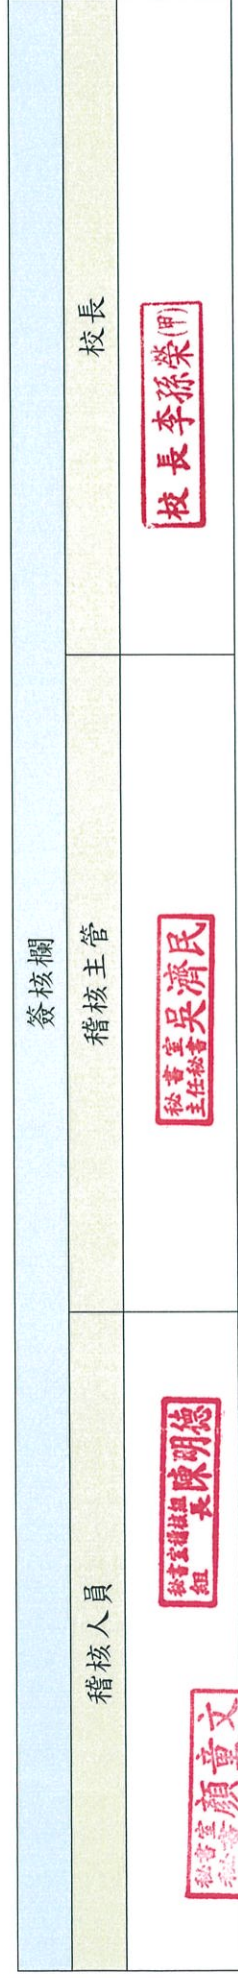 簽核欄
稽核人員
稽核主管
校長
秘書室
秘書
顏童文
秘書室稽核組
組長
陳明德
秘書室
主任秘書
吳濟民
校長李孫榮(甲)